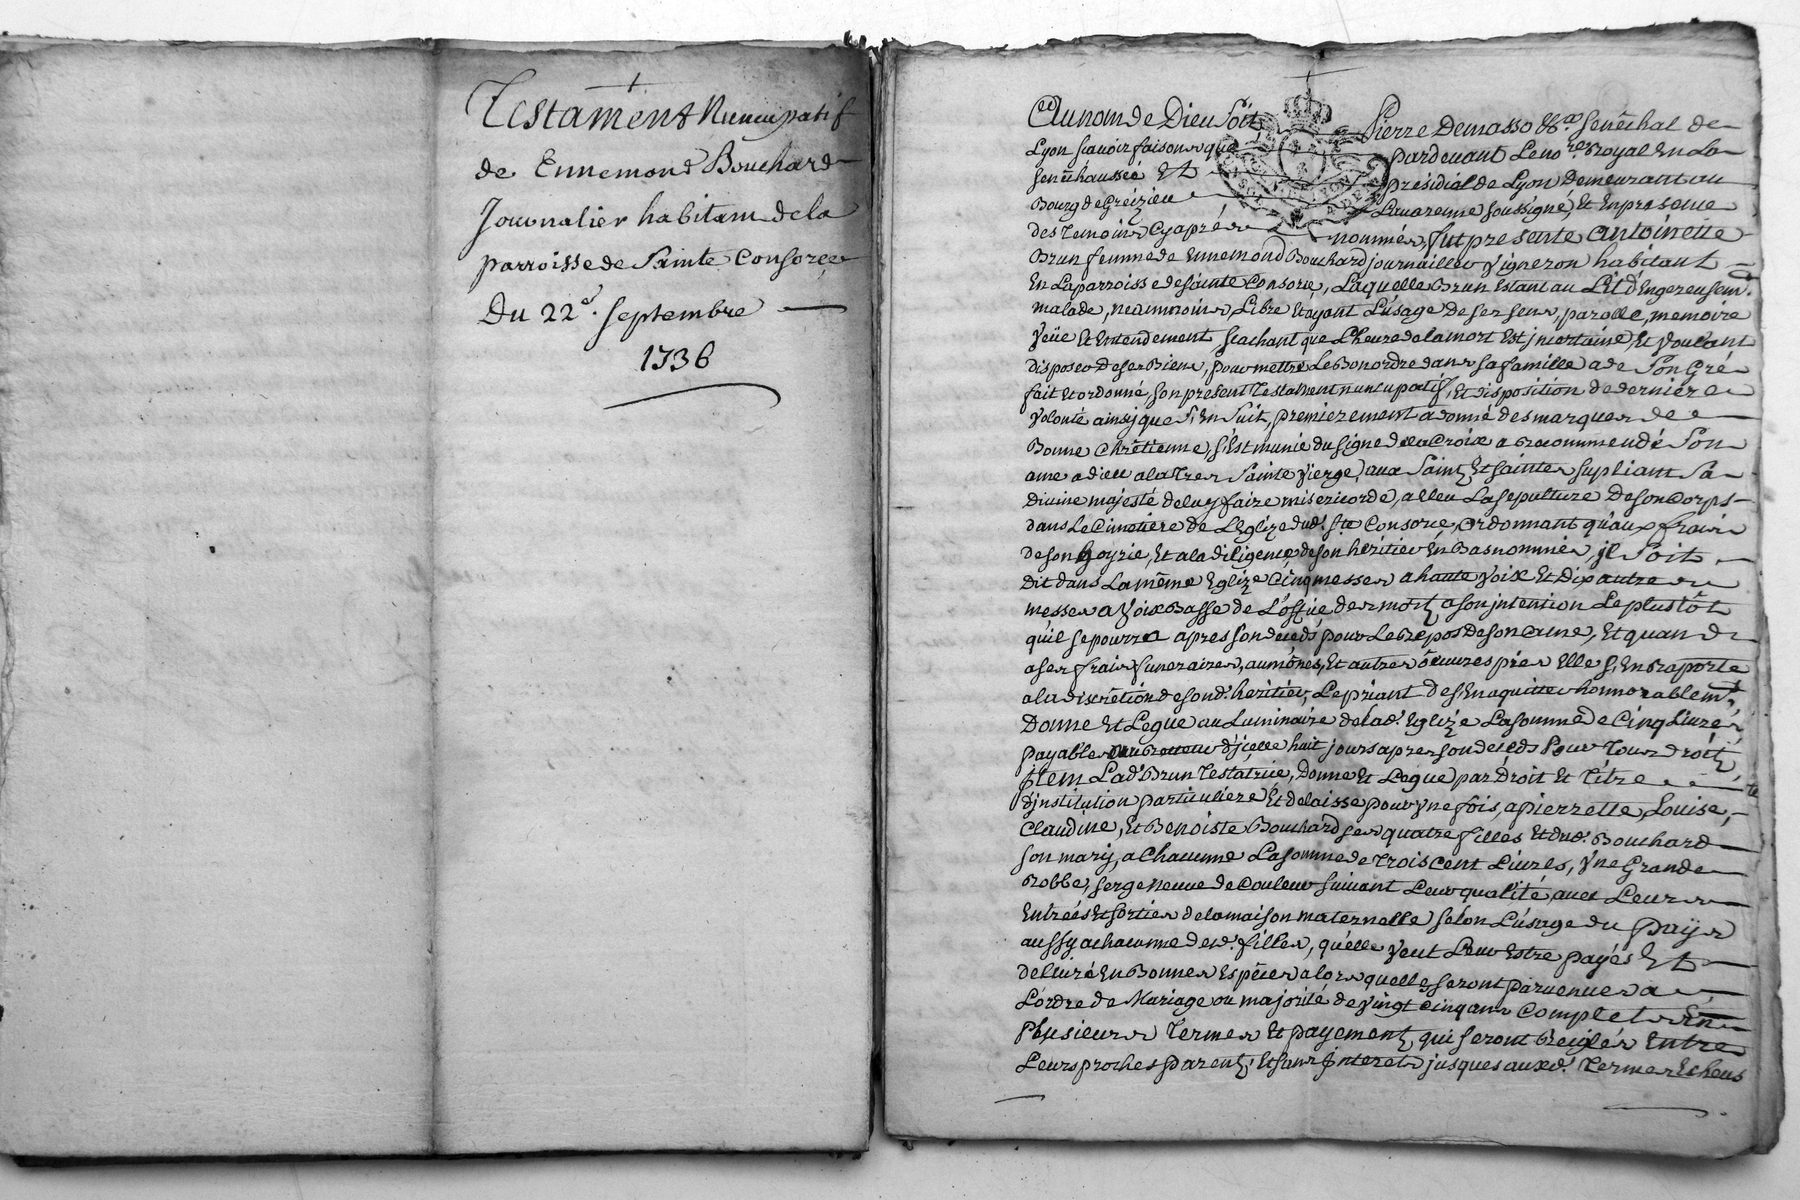 Testament Nuncupatif
de Ennemond Bouchard
Journalier habitant de la
parroisse de Sainte Consorce
Du 22e. septembre
1736
Au nom de Dieu Soit Pierre Demasso &c.a senêchal de
Lyon scavoir faisons que pardevant Le no.re Royal En La
senêchaussée Et présidial de Lyon Demeurant au
Bourg de Gréizieu Lavarenne soussigné, Et En presence
des Temoins Cyaprés nommés, fut presente Antoinette
Brun femme de Ennemond Bouchard journaillier vigneron habitant
En La parroisse de sainte Consorce, Laquelle Brun Estant au Lit d'Engereusem.t
malade, neanmoins, Libre Et ayant L'usage de ses sens, parolle, memoire
Veüe Et Entendement, scachant que L'heure de la mort Est jncertaine, Et voulant
disposer de ses Biens, pour mettre Le Bon ordre dans sa famille a de son Gré
fait Et ordonné, son present Testament nuncupatif, Et disposition de derniere
volonté ainsy que s'En suit, premierement a donné des marques de
Bonne Chrêtienne, s'Est munie du signe de la Croix a Recommendé son
ame a dieu a la Tres Sainte Vierge, aux Saints Et saintes supliant sa
Divine majesté de luy faire misericorde, a Elleu La sepulture de son Corps
dans Le Cimetiére de L'Eglize dud. Ste Consorce, ordonnant qu'aux frais
de son hoyrie, Et a la diligence de son héritier En Bas nommée, jl soit
Dit dans La même Eglize Cinq messes a haute voix Et Dix autres
messes a voix Basse de L'office des morts a son jntention Le plustôt
quil se pourra apres son decéds, pour Le Repos de son ame, Et quand
a ses frais funeraires, aumônes, Et autres oeuvres pies Elle s'En Raporte
a la discrêtion de sond. heritier, Le priant de s'En aquitter honnorablem.t,
Donne Et Legue au Luminaire de lad. Eglize La somme de Cinq Livres,
payables d'jcelle huit jours apres son decéds pour Tous droits,
jtem Lad. Brun Testatrice, Donne Et Legue par droit Et Titre
d'jnstitution particuliere Et delaisse pour vne fois, a pierrette, Louise,
Claudine, Et Benoiste Bouchard ses quatre filles Et dud. Bouchard
son mary, a Chacunne La somme de Trois cent Livres, Vne Grande
Robbe, serge neuve de Couleur suivant Leur qualité, avec Leurs
Entrées Et sorties de la maison maternelle selon L'usage du pays
aussy a chacunne desd. filles, qu'elle veut Leur Estre payés Et
delivré En Bonnes Espêces alors quelles seront parvenues a
L'ordre de Mariage ou majorité de vingt cinq ans Complets En
plusieurs Termes Et payements, qui seront Reiglés Entre
Leurs proches parents, Et sans jnterets jusques auxd. Termes Echeus